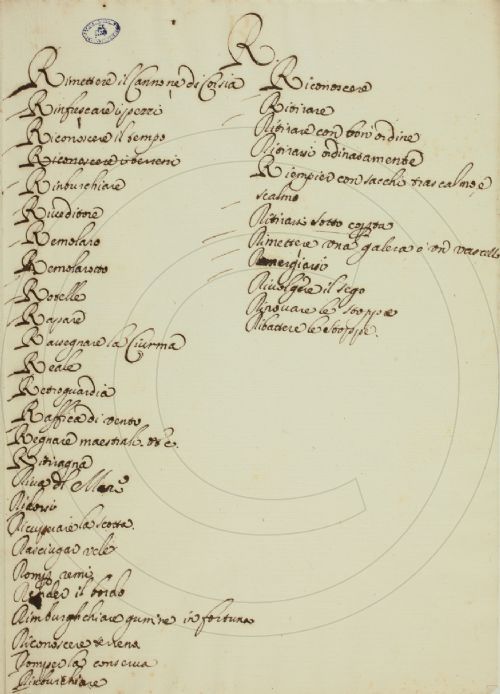 R.
Rimettere il Cannone di Corsia
Rinfrescare i pezzi
Riconoscere il tempo
Riconoscere i terreni
Rinburchiare
Riveditore
Remolaro
Remolarotto
Rotelle
Rapare
Rassegnare la Ciurma
Reale
Retroguardia
Raffica di vento
Regnare maestrali
Ritragna
Riva di Mare
Ricorsi
Ricuperare la scotta
Rasciugar vele
Romper remi
Render il bordo
Rimburghchiare gumine in fortuna
Riconoscere terrena
Romper la conserva
Rinburchiare
Riconoscere
Ritirare
Ritirare con bon ordine
Ritirarsi ordinatamente
Riempier con sacchi tra scalmo, e
scalmo
Ritirarsi sotto coperta
Rimettere una galera o un vascello
Rivolgere il sego
Rinovare le stoppe
Ribattere le stoppe.